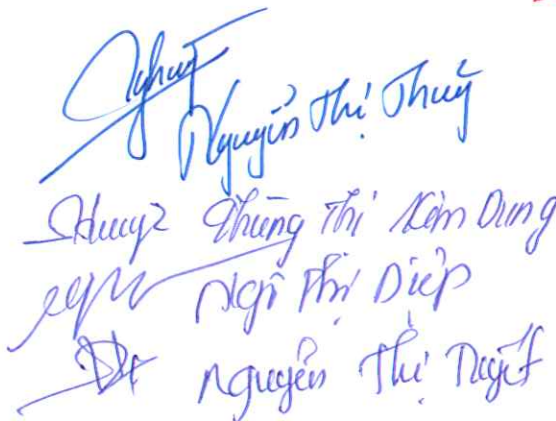 Nguyễn Thị Thuý
Phùng Thị Kim Dung
Ngô Thị Diệp
Nguyễn Thị Tuyết